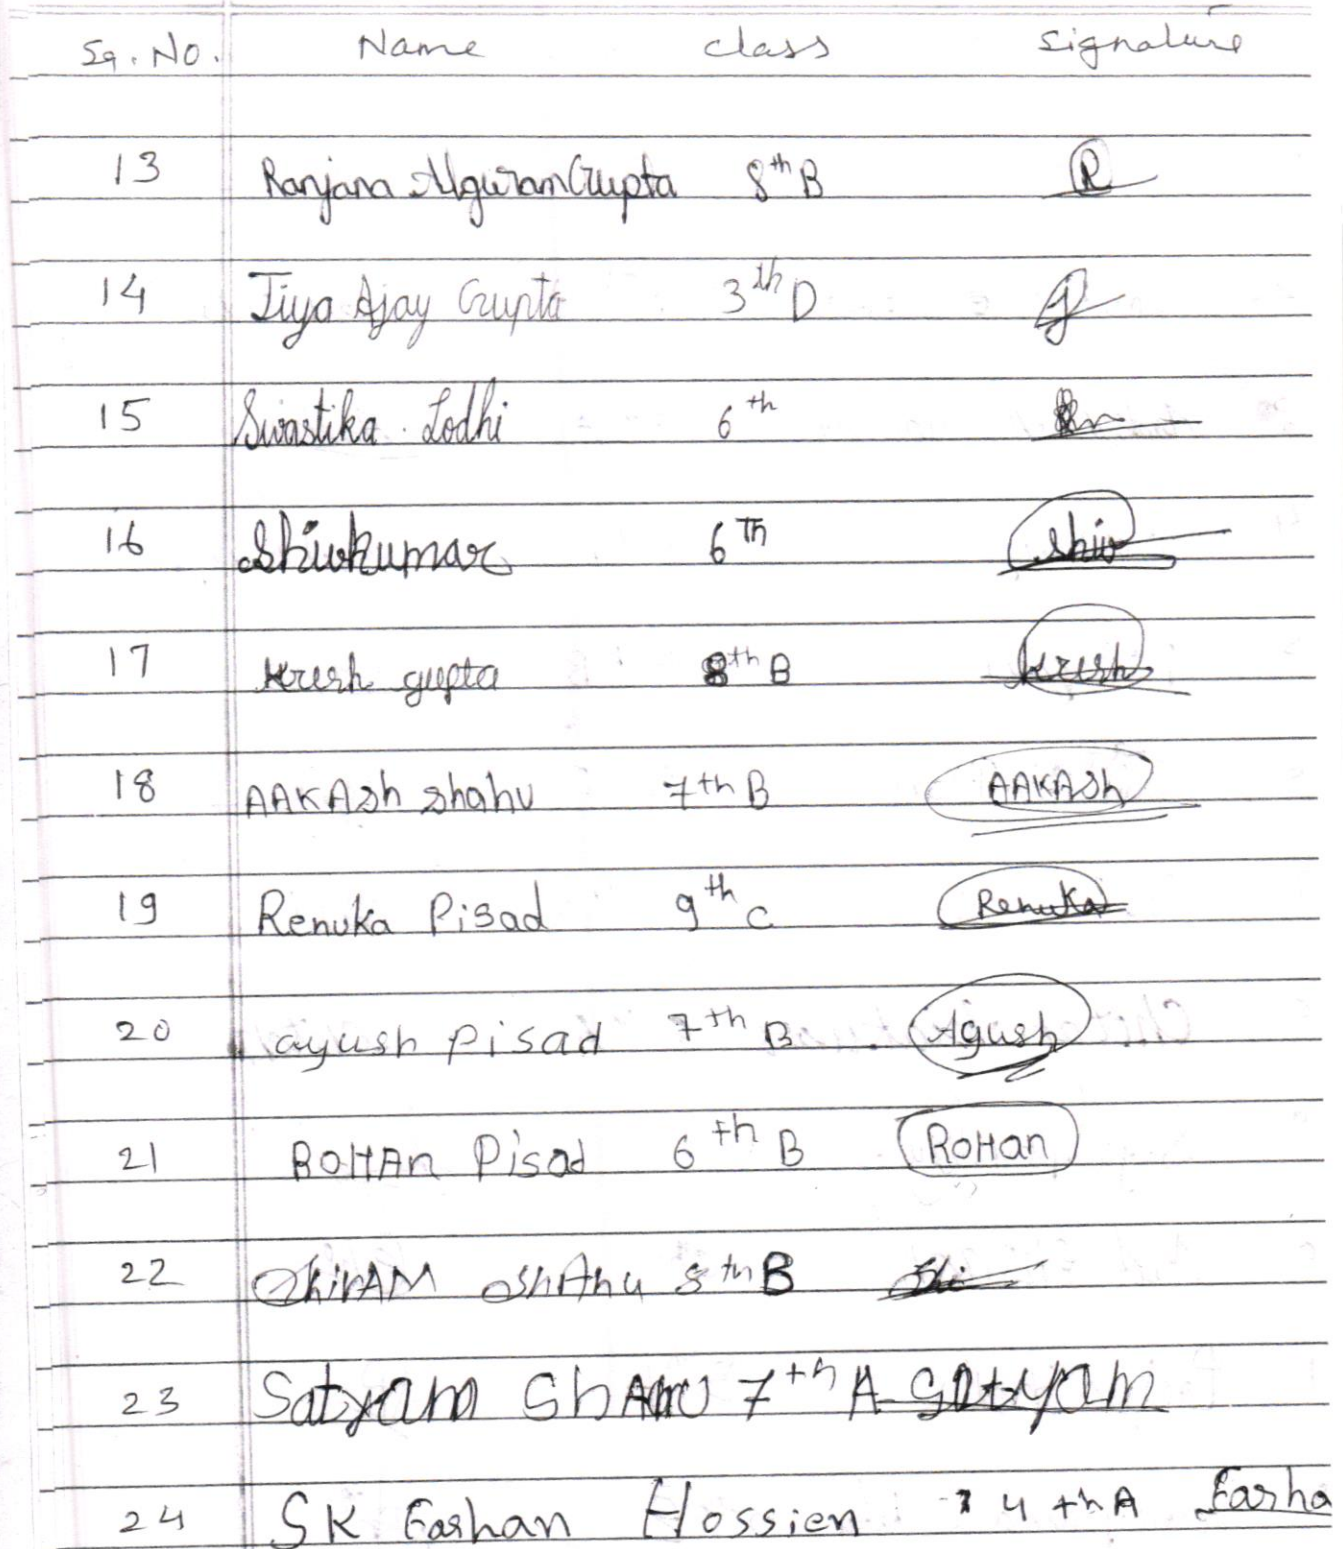 Sq. No. Name class Signature
13 Ranjana Gupta 8th B R
14 Jiya Ajay Gupta 3th D
15 Swastika . Lodhi 6th
16 Shivkumar 6Th Shiv
17 Krish gupta 8th B Krish
18 AAKASh Shahu 7th B AAKASh
19 Renuka Pisad 9th C Renuka
20 ayush Pisad 7th B Ayush
21 ROHAn Pisad 6th B RoHan
22 ShivAM ShAhu 8th B Shi
23 Satyam 7th A Satyam
24 SK Farhan Hossien 4 th A Farha